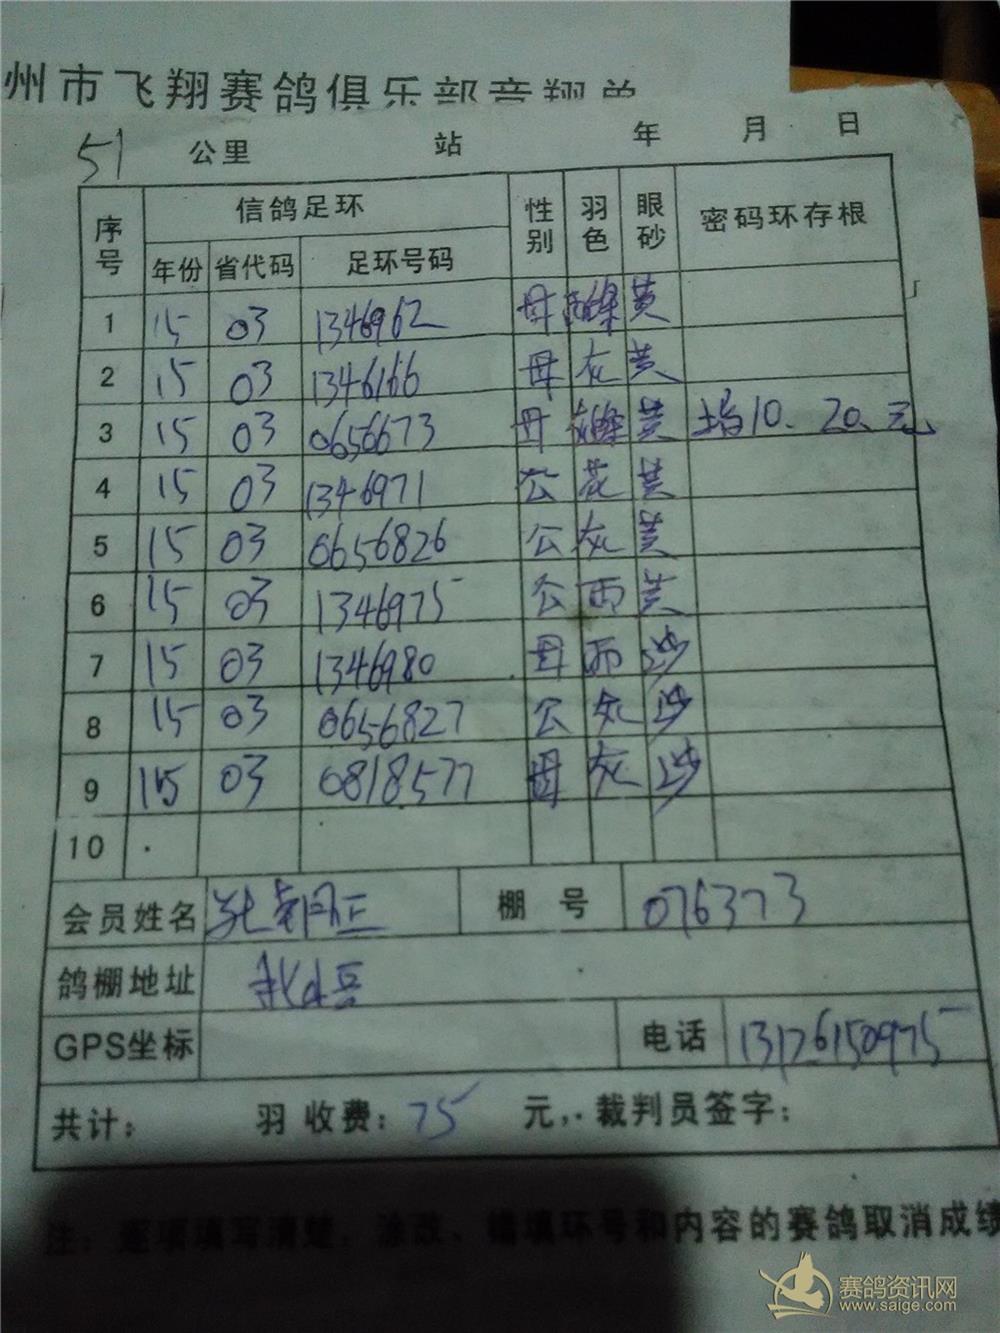 州市飞翔赛鸽俱乐部竞翔单
51 公里 站 年 月 日
序号 信鸽足环 性别 羽色 眼砂 密码环存根
年份 省代码 足环号码
1 15 03 1346962 母 黄
2 15 03 1346166 母 灰 黄
3 15 03 0656673 母 黄 10、20、元
4 15 03 1346971 公 花 黄
5 15 03 0656826 公 灰 黄
6 15 03 1346975 公 雨 黄
7 15 03 1346980 母 雨 沙
8 15 03 0656827 公 灰 沙
9 15 03 0818577 母 灰 沙
10
会员姓名 张朝正 棚号 076373
鸽棚地址
GPS坐标 电话 13176150975
共计: 羽 收费: 75 元,. 裁判员签字:
注:逐项填写清楚,涂改、错填环号和内容的赛鸽取消成绩
赛鸽资讯网
www.saige.com